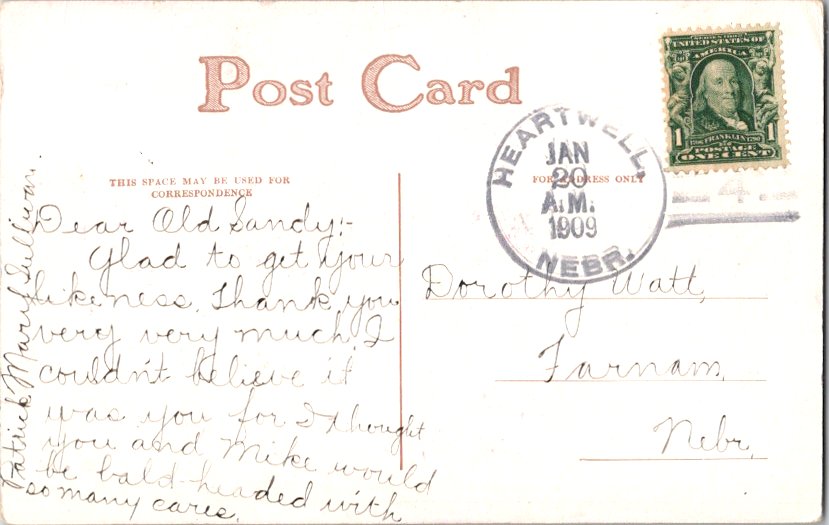 Post Card
THIS SPACE MAY BE USED FOR
CORRESPONDENCE
FOR ADDRESS ONLY
HEARTWELL,
JAN
20
A.M.
1909
NEBR.
UNITED STATES OF
AMERICA
1706 FRANKLIN 1790
1
POSTAGE
ONE CENT
4
Dear Old Sandy:-
Glad to get your
likeness. Thank you
very very much. I
couldn't believe it
was you for I thought
you and Mike would
be bald-headed with
so many cares.
Patrick Mary Sullivan.
Dorothy Watt,
Farnam,
Nebr.